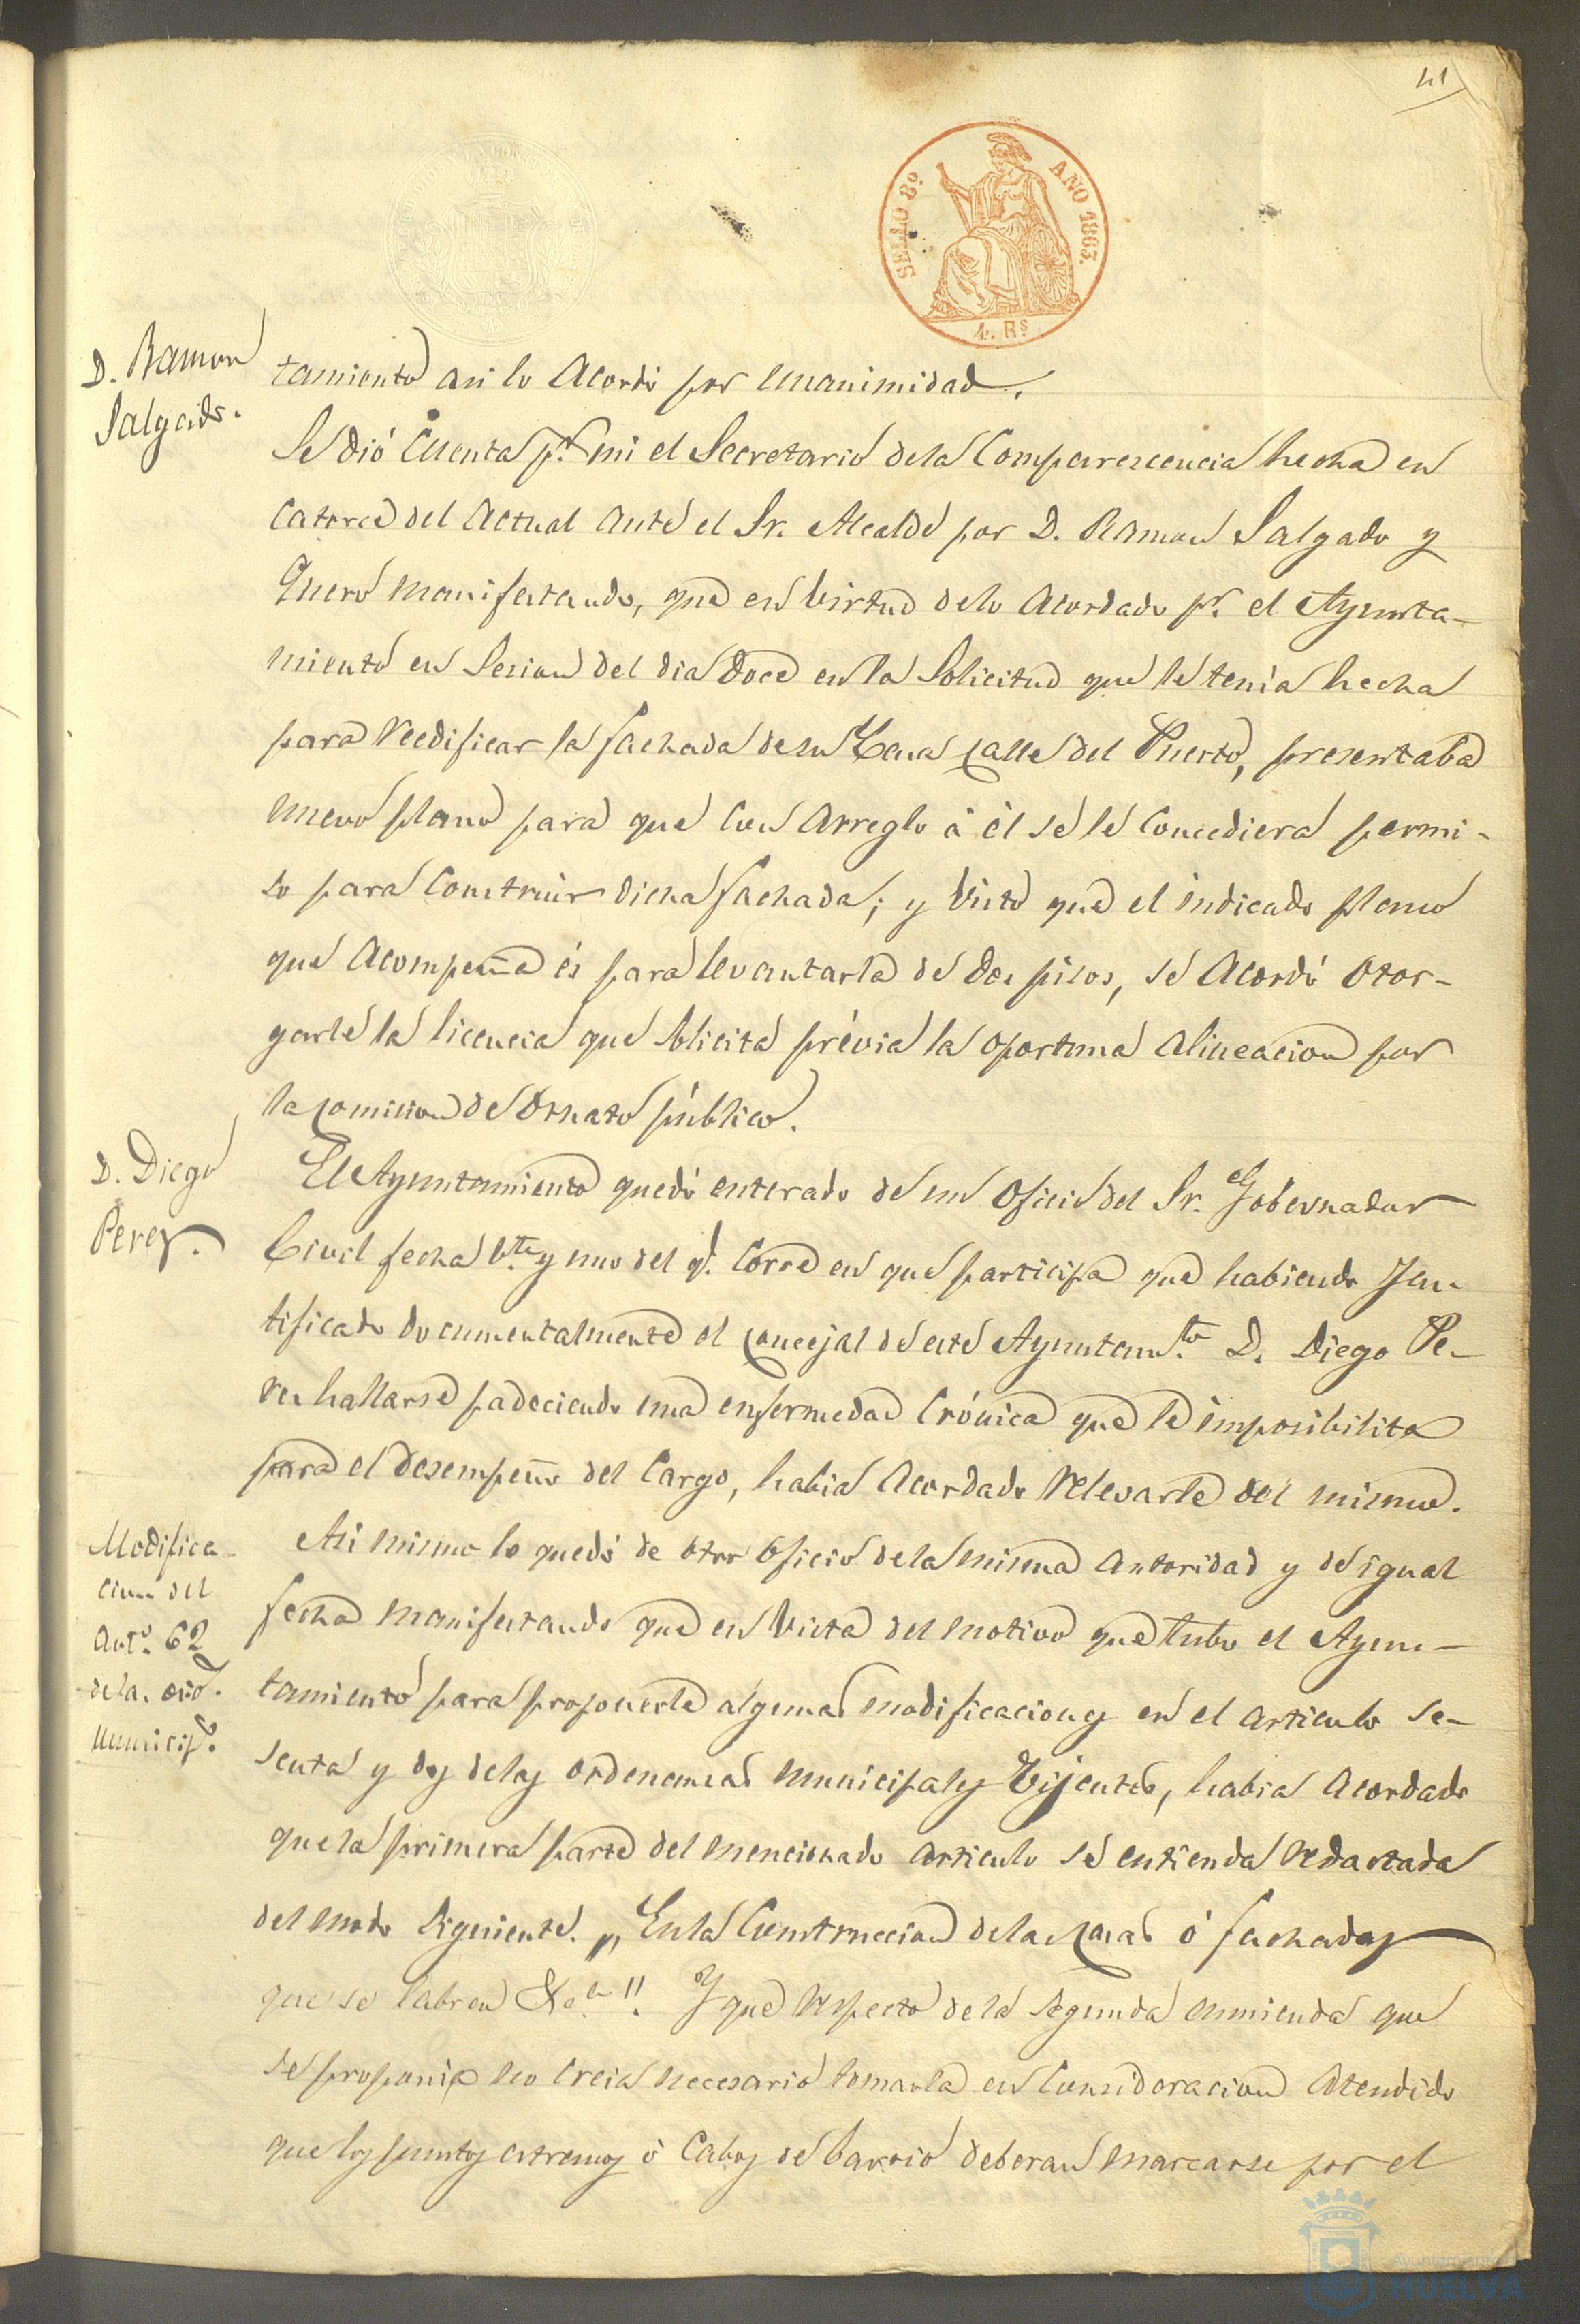 41
SELLO 8º AÑO 1863.
4. Rs
D. Ramon
Salgado.
tamiento asi lo Acordó por unanimidad.
Se dió Cuenta pr. mi el Secretario dela Comparecencia hecha en
Catorce del Actual ante el Sr. Alcalde por D. Ramon Salgado y
Quero manifestando, que en birtud delo Acordado pr. el Ayunta-
miento en Sesion del dia doce en la Solicitud que le tenia hecha
para reedificar la fachada de su Casa Calle del Puerto, presentaba
nuevo plano para que con Arreglo á él se le Concediera permi-
so para Construir dicha fachada; y visto que el indicado plano
que Acompaña és para levantarla de dos pisos, se Acordó otor-
garle la licencia que solicita prévia la oportuna Alineacion por
la Comision de Ornato público.
D. Diego
Perez.
El Ayuntamiento quedó enterado de un Oficio del Sr. Gobernador
Civil fecha bte. y uno del q. Corre en que participa que habiendo Jus-
tificado documentalmente el Concejal de este Ayuntamto. D. Diego Pe-
rez hallarse padeciendo una enfermedad Crónica que le imposibilita
para el desempeño del Cargo, habia Acordado relevarle del mismo.
Modifica-
cion del
Arto. 62
de la. ord.
Municip.
Asi mismo lo quedó de otro Oficio dela misma Autoridad y de igual
fecha manifestando que en vista del motivo que tubo el Ayun-
tamiento para proponerle algunas modificaciones en el articulo se-
senta y dos delas ordenanzas municipales Vijentes, habia Acordado
que la primera parte del mencionado articulo se entienda redactada
del modo Siguiente. „ En la Construccion de las Casas ó fachadas
que se labren &a". Y que respecto de la segunda enmienda que
se proponia no creia necesario tomarla en Consideracion Atendido
que los puntos estremos ó Cabos de barrio deberan marcarse por el
Ayuntamiento
HUELVA